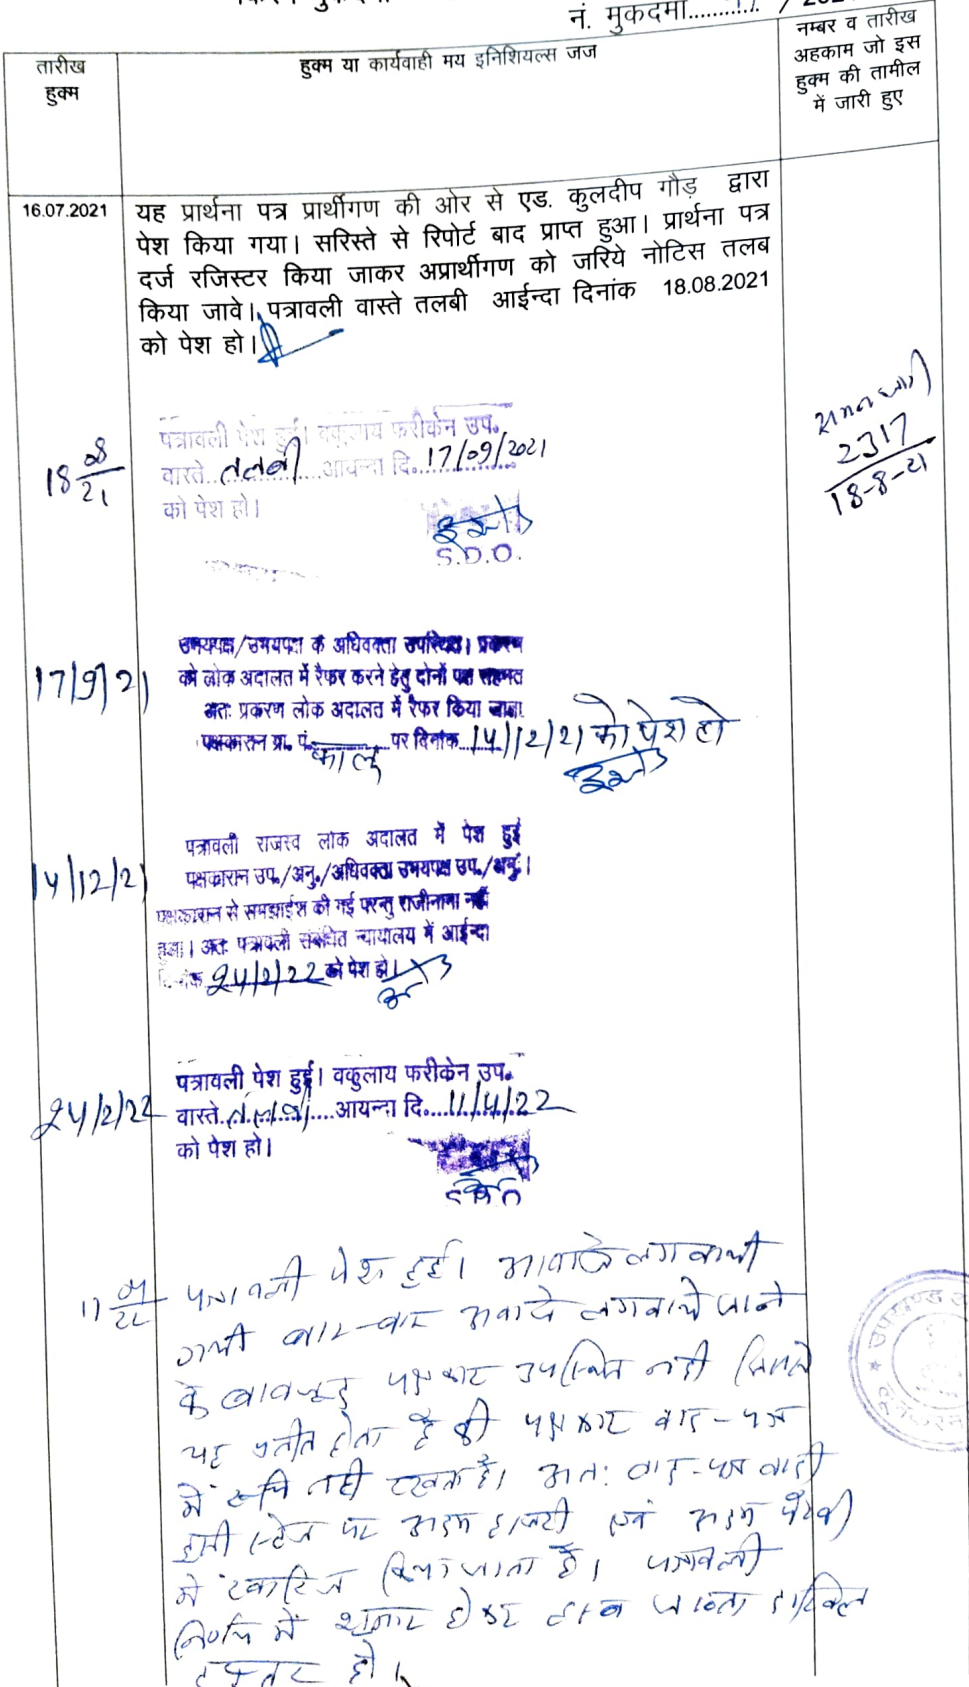 नं. मुकदमा..........
तारीख
हुक्म
हुक्म या कार्यवाही मय इनिशियल्स जज
नम्बर व तारीख
अहकाम जो इस
हुक्म की तामील
में जारी हुए
16.07.2021
यह प्रार्थना पत्र प्रार्थीगण की ओर से एड. कुलदीप गौड़ द्वारा
पेश किया गया। सरिस्ते से रिपोर्ट बाद प्राप्त हुआ। प्रार्थना पत्र
दर्ज रजिस्टर किया जाकर अप्रार्थीगण को जरिये नोटिस तलब
किया जावे। पत्रावली वास्ते तलबी आईन्दा दिनांक 18.08.2021
को पेश हो।
18 08/21
पत्रावली पेश हुई। वकुलाय फरीकेन उप.
वास्ते तलबी आयन्दा दि. 17/09/2021
को पेश हो।
S.D.O.
2317
18-8-21
17/9/21
उभयपक्ष/उभयपक्ष के अधिवक्ता उपस्थित। प्रकरण
को लोक अदालत में रैफर करने हेतु दोनों पक्ष सहमत
अतः प्रकरण लोक अदालत में रैफर किया जाता
पक्षकारान ग्रा. पं. पर दिनांक 14/12/21 को पेश हो
14/12/21
पत्रावली राजस्व लोक अदालत में पेश हुई
पक्षकारान उप./अनु./अधिवक्ता उभयपक्ष उप./अनु.।
पक्षकारान से समझाईश की गई परन्तु राजीनामा नहीं
हुआ। अतः पत्रावली संबंधित न्यायालय में आईन्दा
दिनांक 24/2/22 को पेश हो।
24/2/22
पत्रावली पेश हुई। वकुलाय फरीकेन उप.
वास्ते तलबी आयन्दा दि. 11/4/22
को पेश हो।
11 04/22
पत्रावली पेश हुई। आवाजे लगवायी
गयी बार-बार आवाजे लगवाये जाने
के बावजूद पक्षकार उपस्थित नही जिससे
यह प्रतीत होता है की पक्षकार वाद-पत्र
में रूचि नही रखता है। अतः वाद-पत्र वादी
इसी स्टेज पर अदम हाजरी एवं अदम पैरवी
मे खारिज किया जाता है। पत्रावली
में शुमार होकर दाखिल
दफ्तर हो।
उपखण्ड